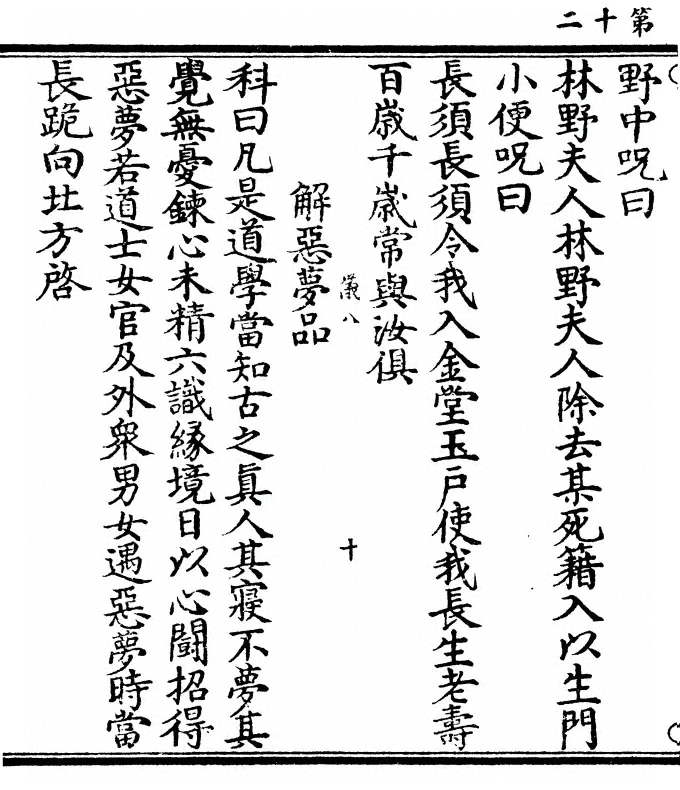 第十二
野中呪曰
林野夫人林野夫人除去某死籍入以生門
小便呪曰
長須長須令我入金堂玉戶使我長生老壽
百歲千歲常與汝俱
儀八
十
解惡夢品
科曰凡是道學當知古之眞人其寢不夢其
覺無憂鍊心未精六識緣境日以心鬪招得
惡夢若道士女官及外衆男女遇惡夢時當
長跪向北方啓